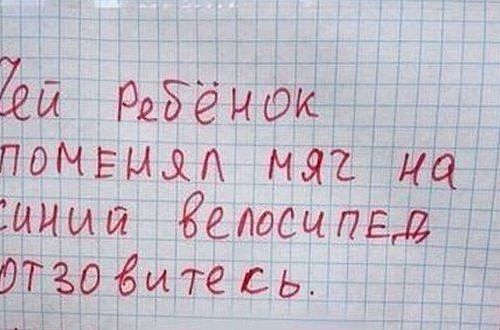 Чей ребёнок
поменял мяч на
синий велосипед
отзовитесь.